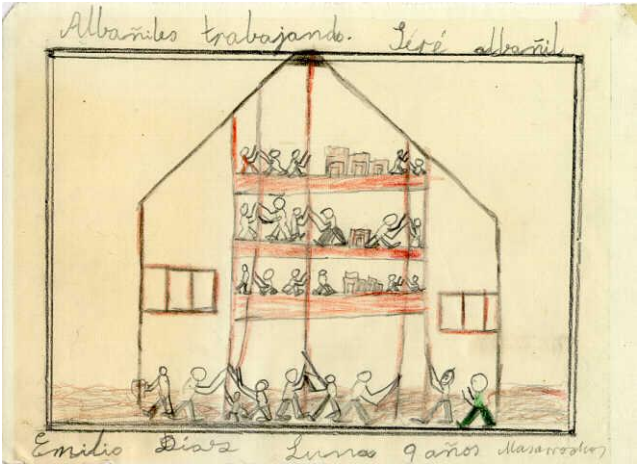 Albañiles trabajando. Séré albañil
Emilio Díaz Luna 9 años Masarrochos